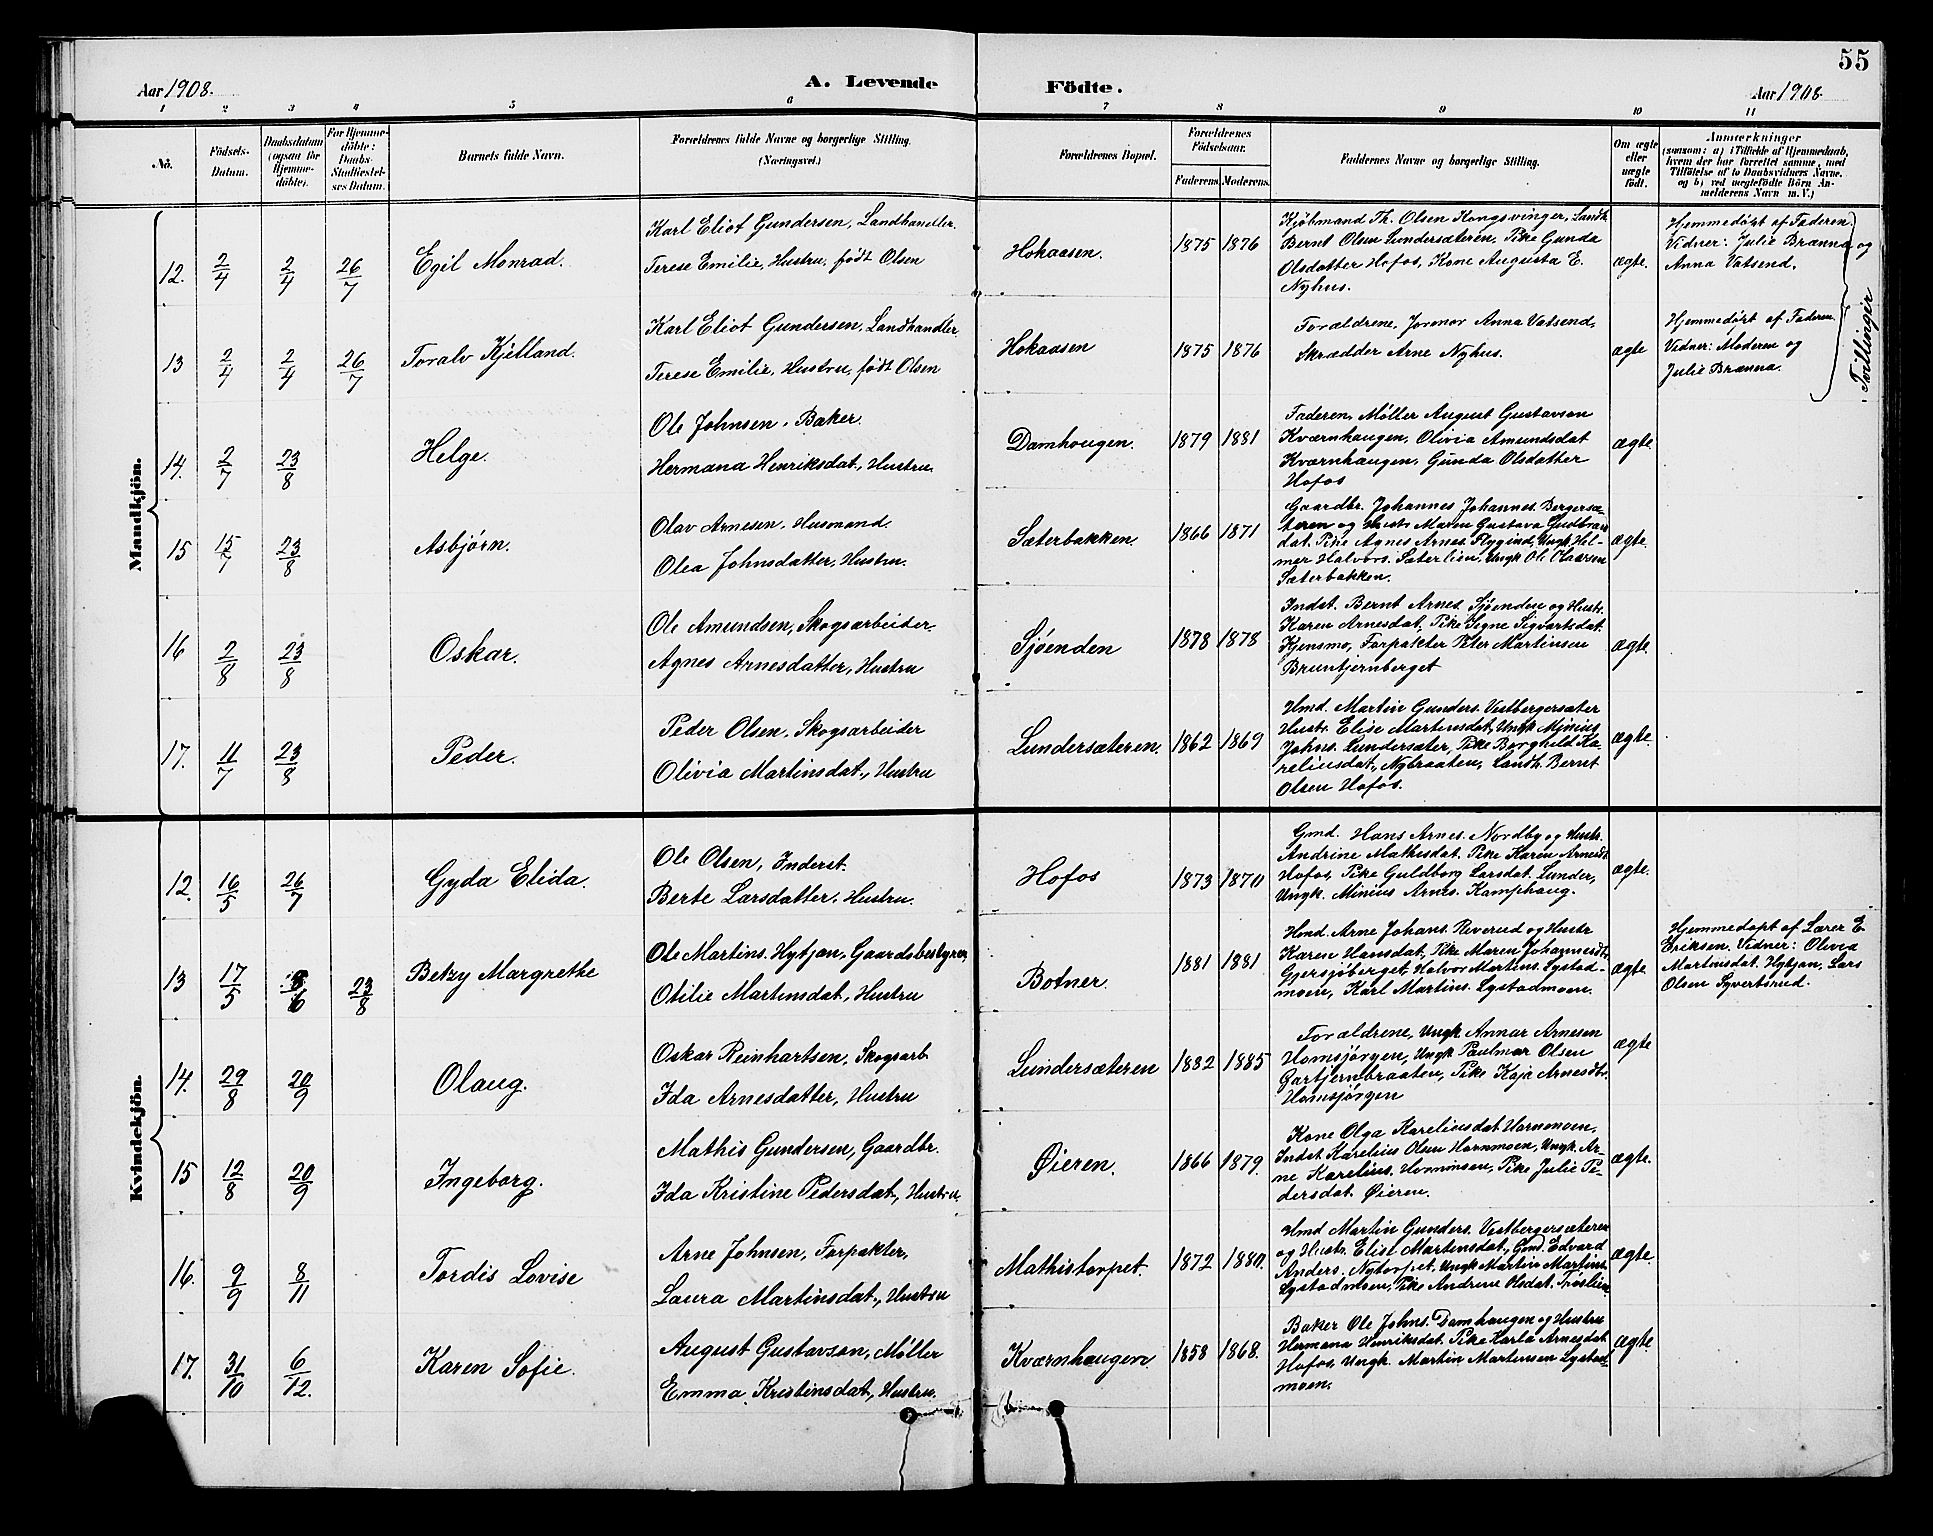 55
Aar 1908.
A. Levende Födte.
Aar 1908.
1 2 3 4 5 6 7 8 9 10 11
No.
Födsels-Datum.
Daabsdatum (ogsaa for Hjemmedöbte).
For Hjemmedöbte: Daabs-Stadfæstelses Datum.
Barnets fulde Navn.
Forældrenes fulde Navne og borgerlige Stilling. (Næringsvei.)
Forældrenes Bopæl.
Forældrenes Födselsaar.
Faderens. Moderens.
Faddernes Navne og borgerlige Stilling.
Om ægte eller uægte födt.
Anmærkninger
(saasom: a) i Tilfælde af Hjemmedaab,
hvem der har forrettet samme, med
Tilföielse af to Daabsvidners Navne,
og b) ved uægtefödte Börn An-
melderens Navn m. V.)
Mandkjön.
12. 2/4 2/4 26/7 Egil Monrad.
Karl Eliot Gundersen, Landhandler.
Terese Emilie, Hustru, født Olsen
Hokaasen. 1875 1876
Kjöbmand Th. Olsen Kongsvinger, Landh.
Bernt Olsen Lundersæteren, Pike Gunda
Olsdatter Hofos, Kone Augusta E.
Nyhus.
ægte.
Hjemmedøpt af Faderen.
Vidner: Julie Brænna og
Anna Vatsend.
Tvillinger
13 2/4 2/4 26/7 Toralv Kjelland.
Karl Eliot Gundersen, Landhandler.
Terese Emilie, Hustru, født Olsen
Hokaasen 1875 1876
Forældrene, Jormor Anna Vatsend,
Skrædder Arne Nyhus.
ægte
Hjemmedøpt af Faderen.
Vidner: Moderen og
Julie Brænna.
14. 2/7 23/8 Helge.
Ole Johnsen, Baker.
Hermana Henriksdat., Hustru.
Damhougen. 1879 1881
Faderen, Møller August Gustavson
Kværnhaugen, Olivia Amundsdat
Kværnhaugen, Gunda Olsdatter
Hofos
ægte.
15 15/7 23/8 Asbjørn.
Olav Arnesen, Husmand.
Olea Johnsdatter, Hustru.
Sæterbakken. 1866 1871
Gaardbr. Johannes Johannes. Bergersæ-
teren og Hustr. Maren Gustava Gudbran
dat. Pike Agnes Arnes. Flygind, Ungk. Hil-
mer Halvors. Sæterlien, Ungk Ole Olavsen
Sæterbakken.
ægte.
16 2/8 23/8 Oskar.
Ole Amundsen, Skogsarbeider.
Agnes Arnesdatter, Hustru
Sjøenden 1878 1878
Indst. Bernt Arnes. Sjøenden og Hustr.
Karen Arnesdat. Pike Signe Sigvartsdat.
Kjensmo, Forpakter Peter Martinsen
Bruntjernberget
ægte.
17. 11/7 23/8 Peder.
Peder Olsen, Skogsarbeider
Olivia Martinsdat., Hustru
Lundersæteren. 1862 1869
Hmd. Martin Gunders. Vestbergersæter
Hustr. Elise Martinsdat, Ungk Minius
Johns. Lundersæter, Pike Borghild Ka-
reliusdat., Nybraaten, Landh. Bernt
Olsen Hofos.
ægte.
Kvindekjön.
12. 16/5 26/7 Gyda Elida.
Ole Olsen, Inderst.
Berte Larsdatter, Hustru.
Hofos 1873 1870
Gmd. Hans Arnes. Nordby og Hustr.
Andrine Mathisdat. Pike Karen Arnesdt.
Hofos, Pike Guldborg Larsdat. Lunder,
Ungk. Minius Arnes. Kamphaug.
ægte.
13 17/5 /6 23/8 Betzy Margrethe
Ole Martins. Hytjan, Gaardsbestyrer,
Otilie Martinsdat, Hustru
Botner. 1881 1881
Hmd. Arne Johans. Reverud og Hustr
Karen Hansdat, Pike Maren Johannesdt.
Gjersjøberget, Halvor Martins. Lystad-
moen, Karl Martins. Lystadmoen.
ægte
Hjemmedøpt af Lærer E
Eriksen. Vidner: Olivia
Martinsdat. Hytjan, Lars
Olsen Syvertsrud.
14. 29/8 20/9 Olaug.
Oskar Reinhartsen, Skogsarb
Ida Arnesdatter, Hustru
Lundersæteren 1882 1885
Forældrene, Ungk Annar Arnesen
Homsjørgen, Ungk Paulmar Olsen
Gartjernbraaten, Pike Kaja Arnesdt.
Homsjørgen
ægte
15 12/8 20/9 Ingeborg.
Mathis Gundersen, Gaardbr.
Ida Kristine Pedersdat, Hustru
Øieren. 1866 1879.
Kone Olga Kareliusdat Hornmoen,
Indst Karelius Olsen Hornmoen, Ungk. Ar-
ne Karelius. Hornmoen, Pike Julie Pe-
dersdat. Øieren.
ægte.
16. 9/9 8/11 Tordis Lovise
Arne Johnsen, Forpakter,
Laura Martinsdat., Hustru
Mathistorpet. 1872 1880.
Hmd Martin Gunders. Vestbergersæteren
og Hustr. Elise Martinsdat., Gmd. Edvard
Anders. Nytorpet, Ungk Martin Martins.
Lystadmoen, Pike Andrine Olsdat.
ægte.
17. 31/10 6/12. Karen Sofie.
August Gustavson, Møller
Emma Kristinsdat, Hustru.
Kværnhaugen 1858 1868.
Baker Ole Johns. Damhaugen og Hustru
Hermana Henriksdat. Pike Karla Arnesdat
Hofos, Ungk. Martin Martinsen Lystad-
moen.
ægte.